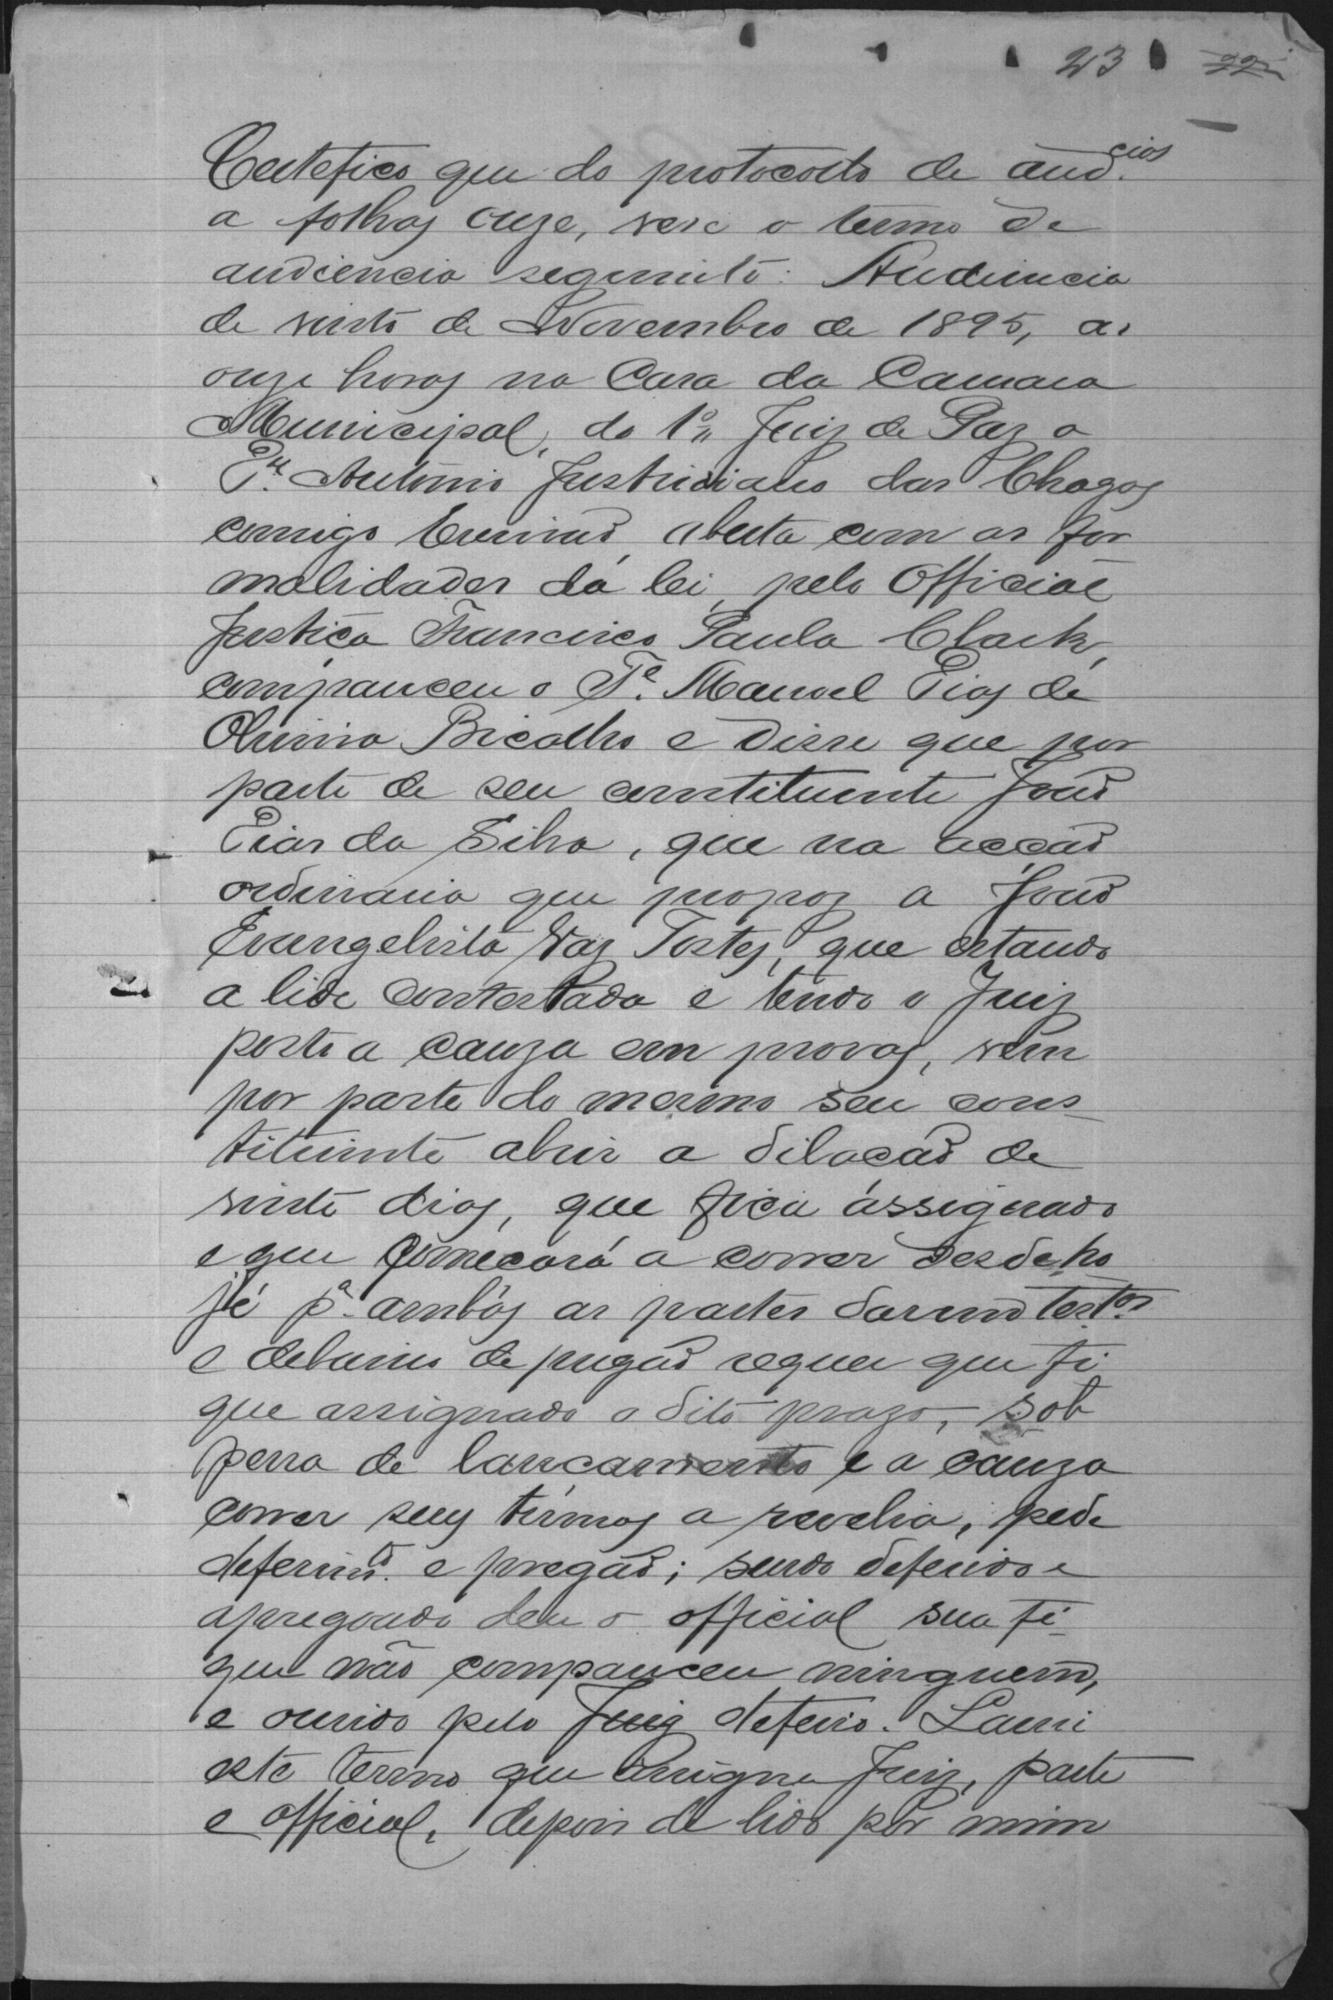 23 22
Certefico que do protocollo de aud.cias
a folhas onze, verc o termo de
audiencia seguinte: Audiencia
de vinte de Novembro de 1895, as
onze horas na Casa da Camara
Municipal, do 1º Juiz de Paz o
Antonio Justiniano das Chagas
comigo Escrivaõ, aberta com as for
malidades da lei, pelo Official
Justiça Francisco Paula Clark,
compareceu o Te. Manoel Dias de
Oliveira Bicalho e disse que por
parte de seu constituinte Joaõ
Dias da Silva, que na acçaõ
ordinaria que propoz a Joaõ
Evangelista Vaz Tostes, que estando
a lide contestada e tendo o Juiz
posto a cauza em provas, vem
por parte do mesmo seu cons
tituinte abrir a dilaçaõ de
vinte dias, que fica assignado
e que começará a correr desde ho
je pª ambas as partes darem testas
e debaixo de pregaõ requer que fi
que assignado o dito prazo, sob
pena de lançamento e a cauza
correr seus termos a revelia, pede
deferimto. e pregaõ; sendo deferido e
apregoado deu o official sua fé
que não compareceu ninguem,
e ouvido pelo Juiz deferio. Lavrei
este termo que assigna Juiz, parte
e official, depois de lido por mim